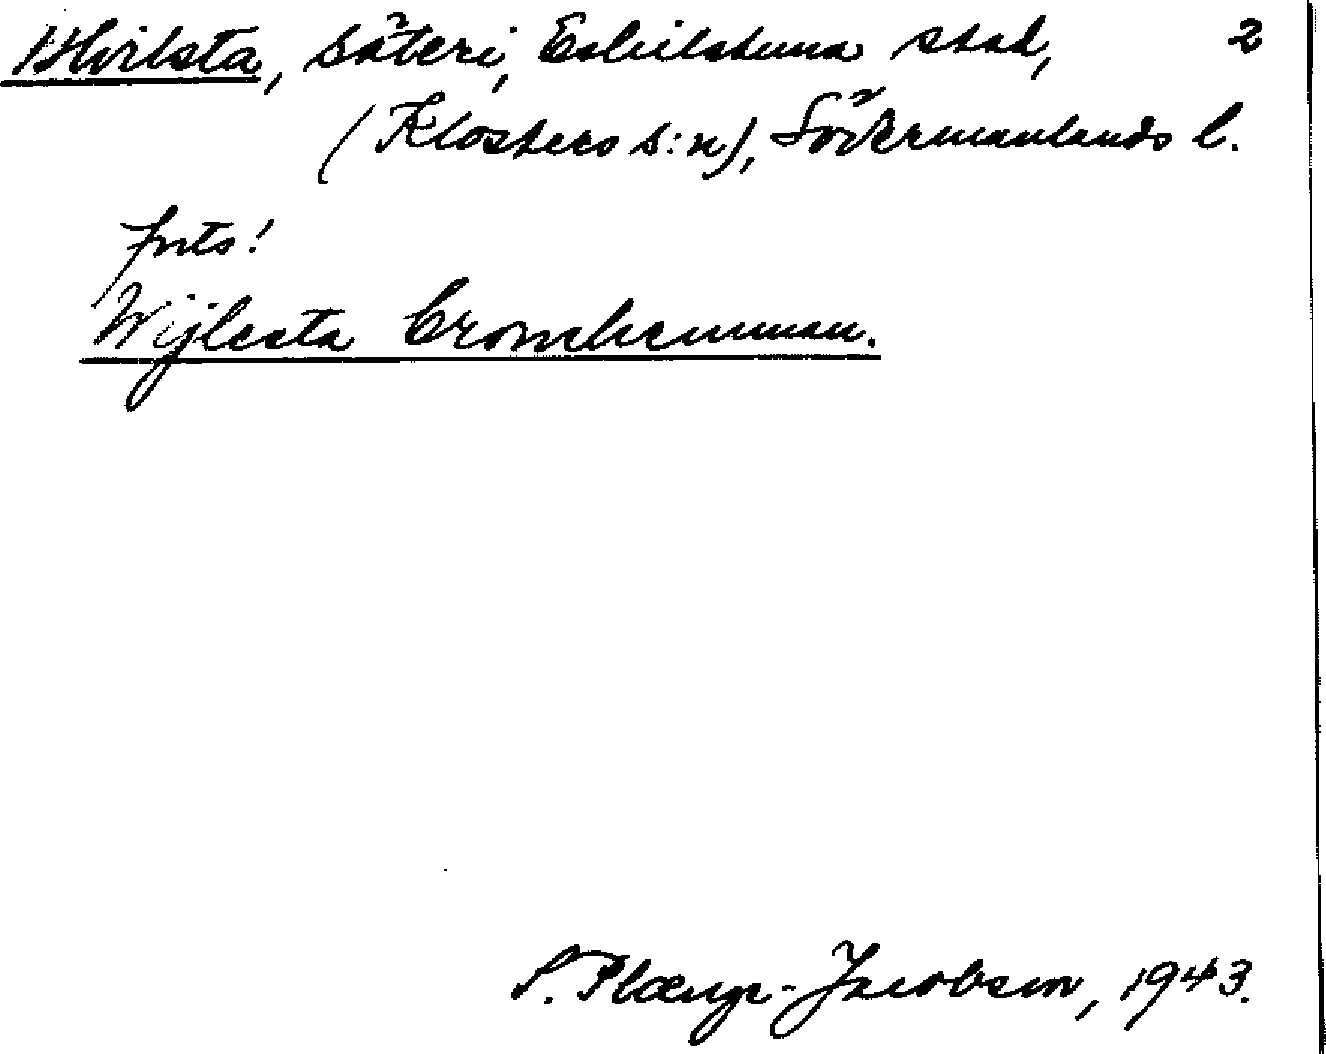 Hvilsta, säteri, Eskilstuna stad, 2
(Klosters s:n), Södermanlands l.
forts!
Wijlesta Cronehemman.
S. Plænge-Jacobson, 1943.